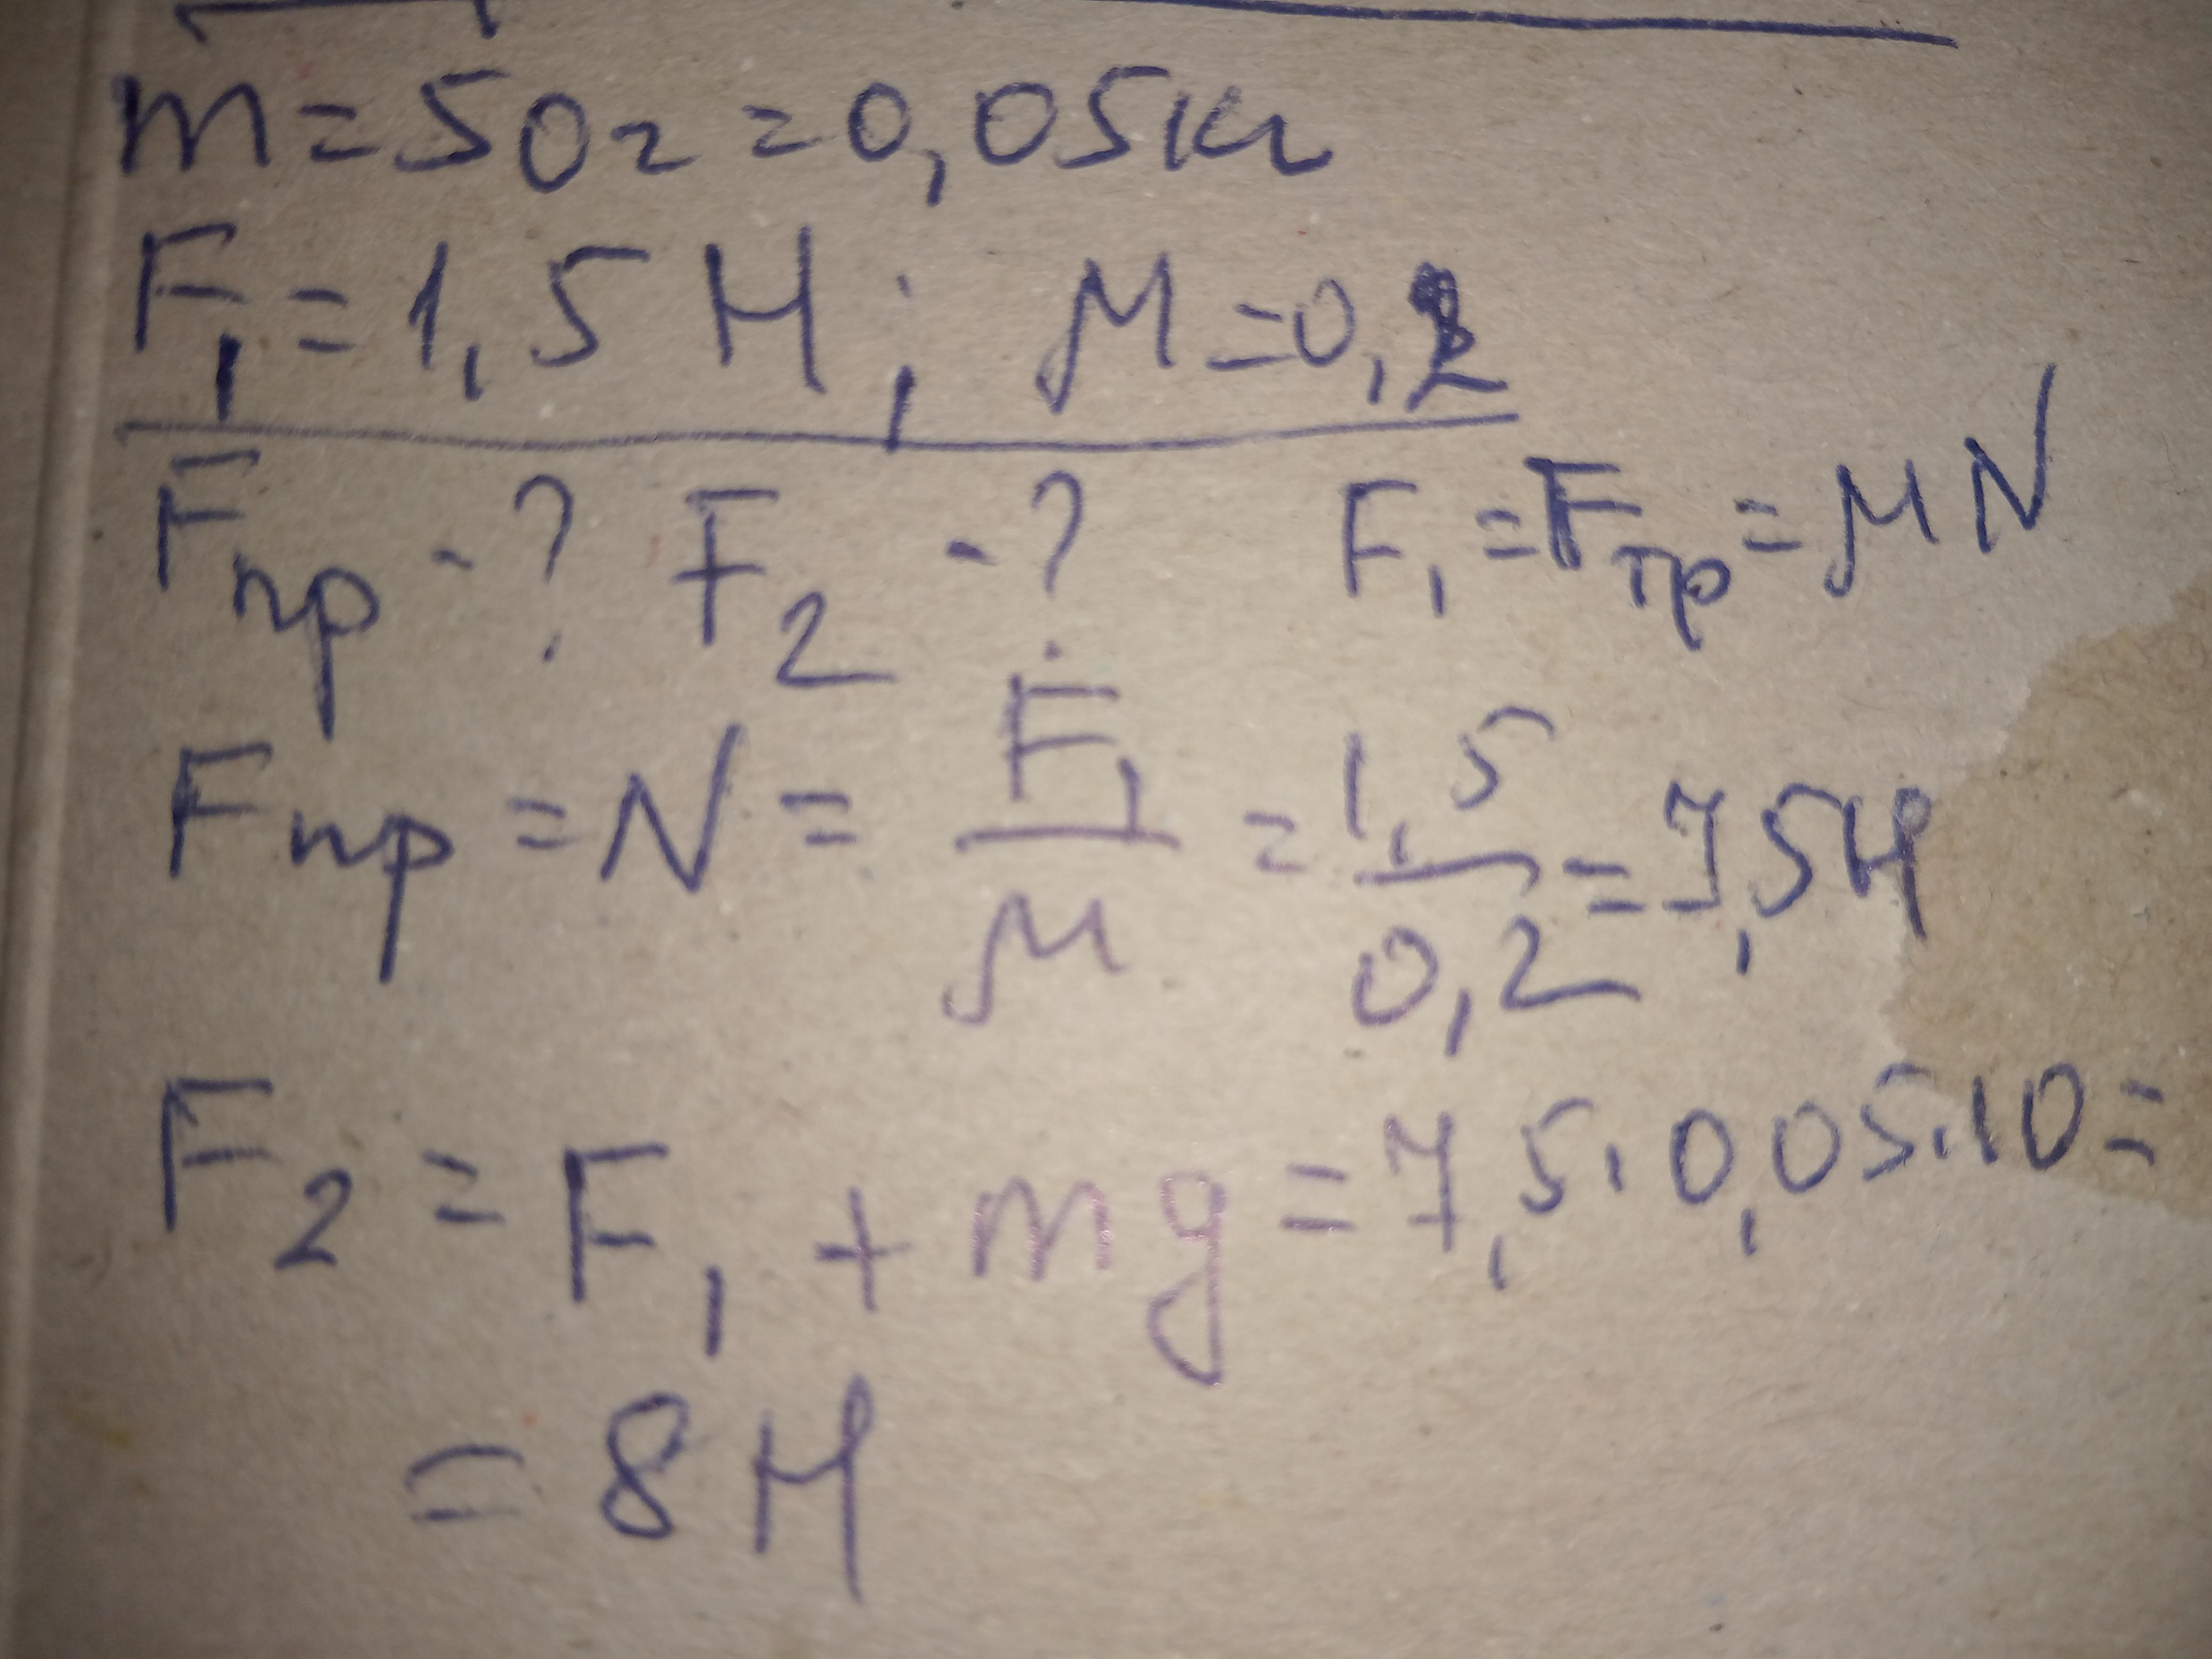 m = 50г = 0,05 кг
F₁ = 1,5 Н; μ = 0,2
Fпр - ? F₂ - ? F₁ = Fтр = μN
Fпр = N = F₁/μ = 1,5/0,2 = 7,5Н
F₂ = F₁ + mg = 7,5 · 0,05 · 10 =
= 8 Н